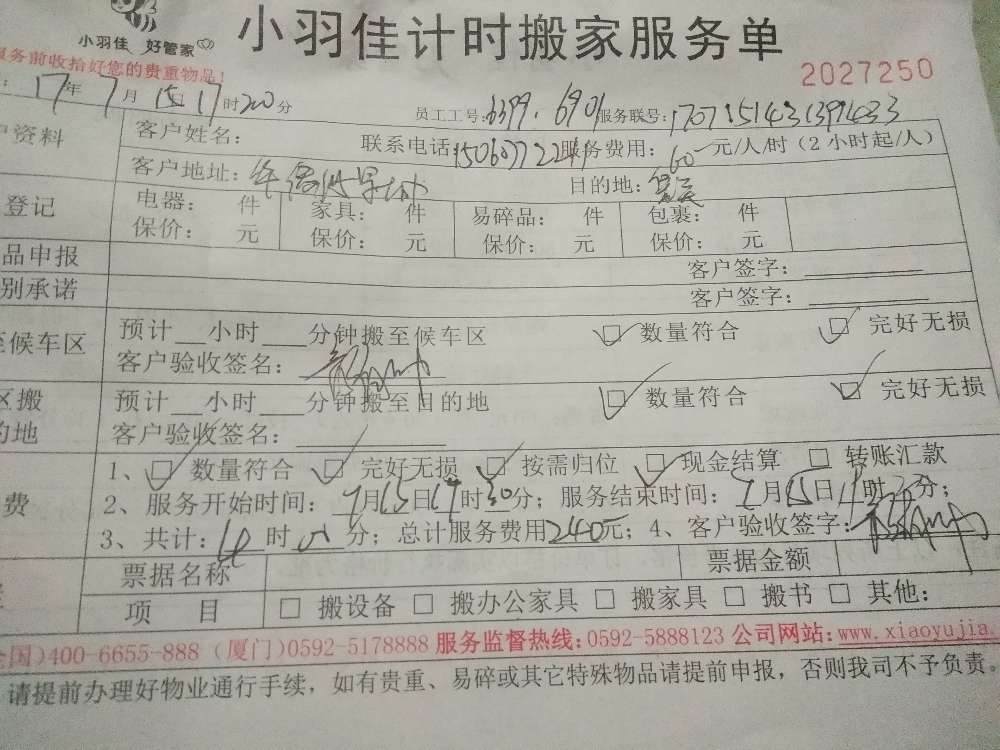 小羽佳 好管家
小羽佳计时搬家服务单
服务前收拾好您的贵重物品!
2027250
17年7月15日17时20分 员工工号:6399.6901 服务联号:
资料 客户姓名: 联系电话: 服务费用:60元/人/时(2小时起/人)
客户地址: 目的地:
登记 电器: 件 家具: 件 易碎品: 件 包裹: 件
保价: 元 保价: 元 保价: 元 保价: 元
品申报 客户签字:
别承诺 客户签字:
至候车区 预计__小时___分钟搬至候车区 数量符合 完好无损
客户验收签名:
区搬 预计__小时___分钟搬至目的地 数量符合 完好无损
的地 客户验收签名:
1、 数量符合 完好无损 按需归位 现金结算 转账汇款
费 2、服务开始时间:7月15日17时30分; 服务结束时间:7月15日 时 分;
3、共计: 时 分; 总计服务费用240元; 4、客户验收签字:
票据名称 票据金额
项 目 □ 搬设备 □ 搬办公家具 □ 搬家具 □ 搬书 □ 其他:
全国)400-6655-888 (厦门)0592-5178888 服务监督热线:0592-5888123 公司网站:www.xiaoyujia.
请提前办理好物业通行手续,如有贵重、易碎或其它特殊物品请提前申报,否则我司不予负责。